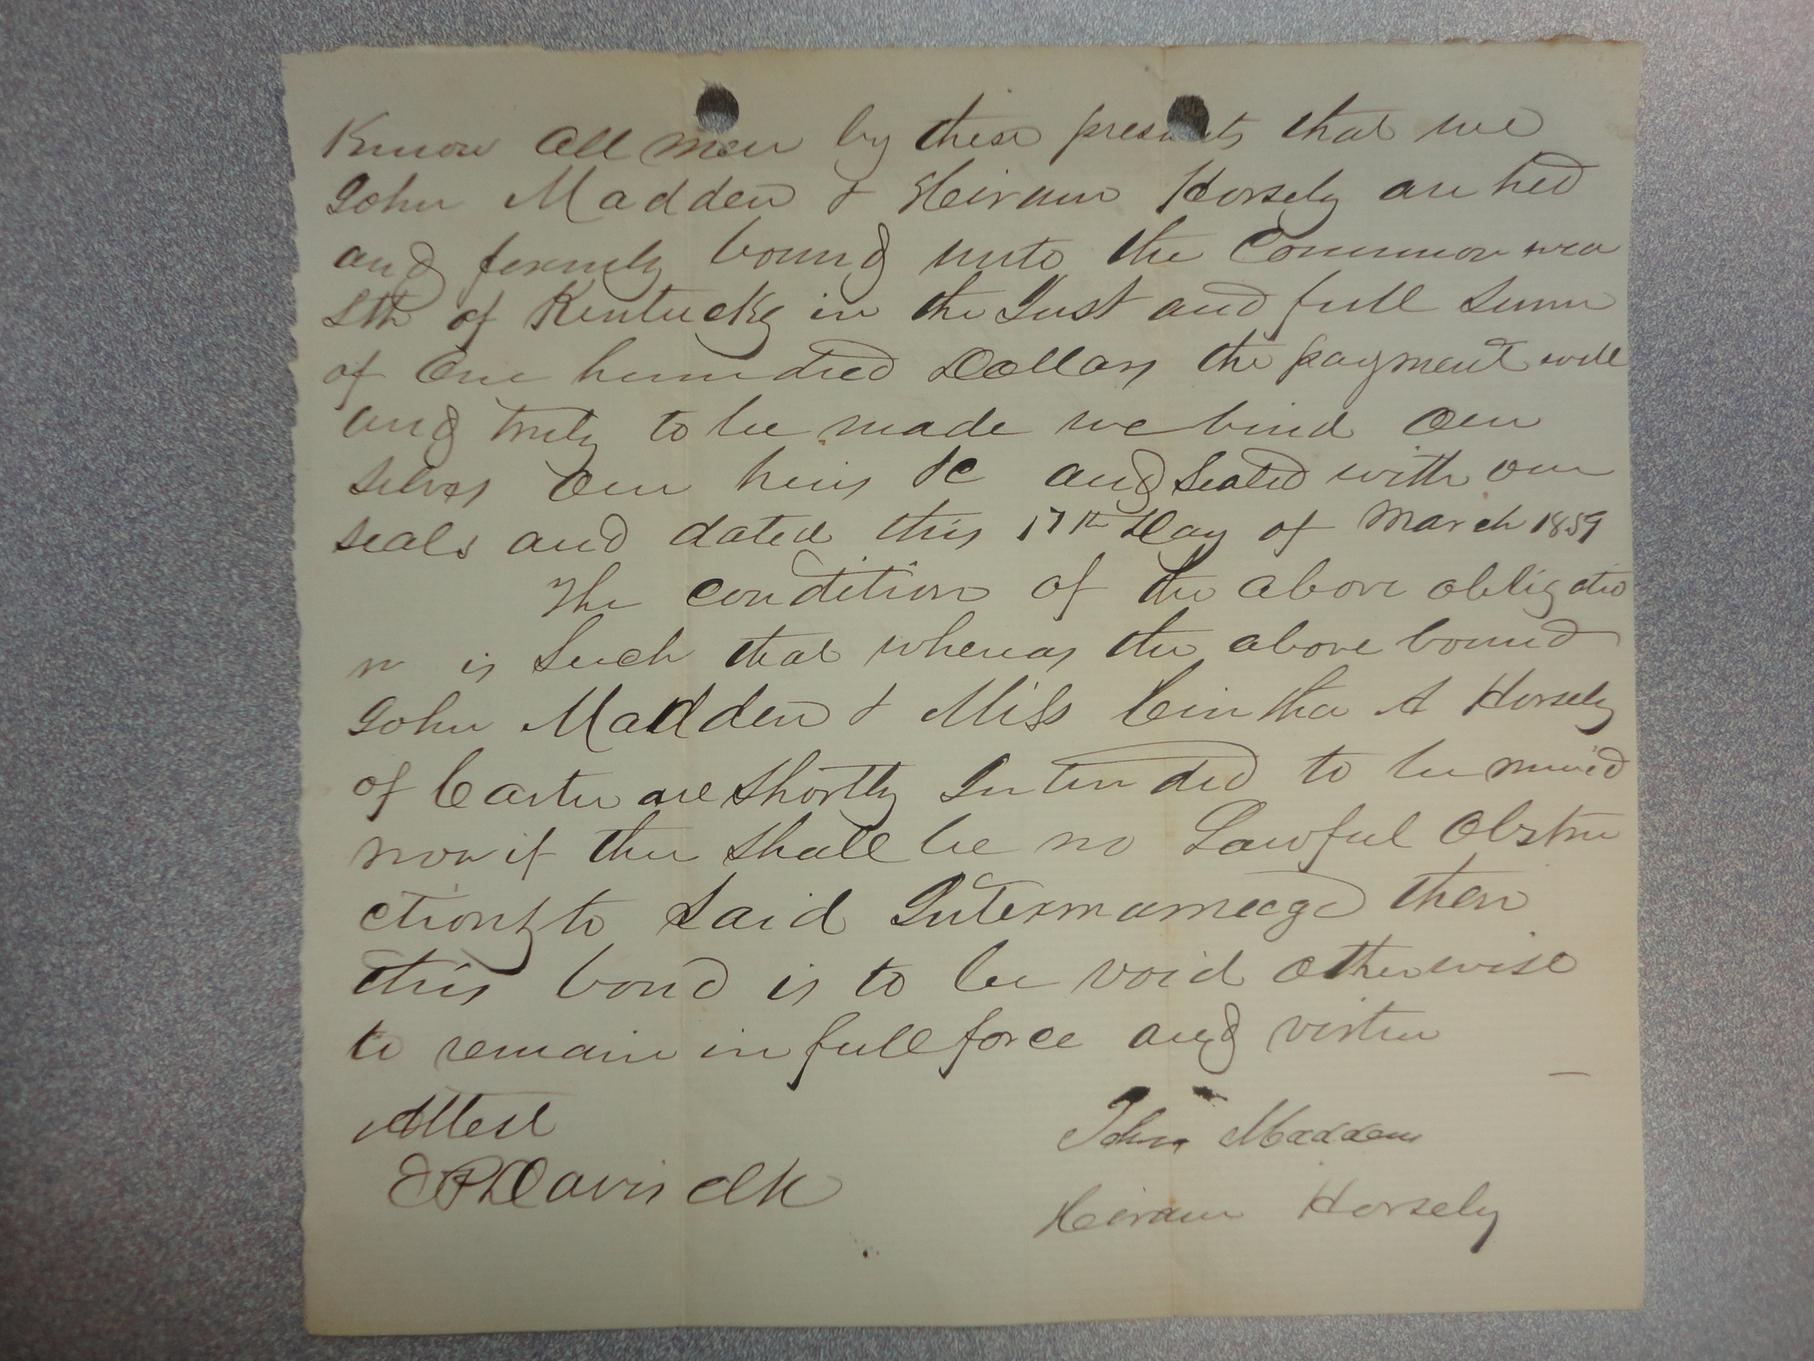 Know all men by these presents that we
John Madden & Heiram Horsely are hed
and fermly bound unto the Common wea
lth of Kentucky in the Just and full Sum
of One hundred Dollars the payment well
and truly to be made we bind our
selves our heirs &c and Sealed with our
seals and dated this 17th Day of March 1859
The condition of the above obligatio
n is Such that whereas the above bound
John Madden & Miss Cintha A Horsely
of Carter are Shortly Intended to be
now if ther Shall be no Lawful Obstru
ctions to Said Intermarreage then
this bond is to be void otherwise
to remain in full force and virtue
Attest
Davis clk
John Madden
Heiram Horsely